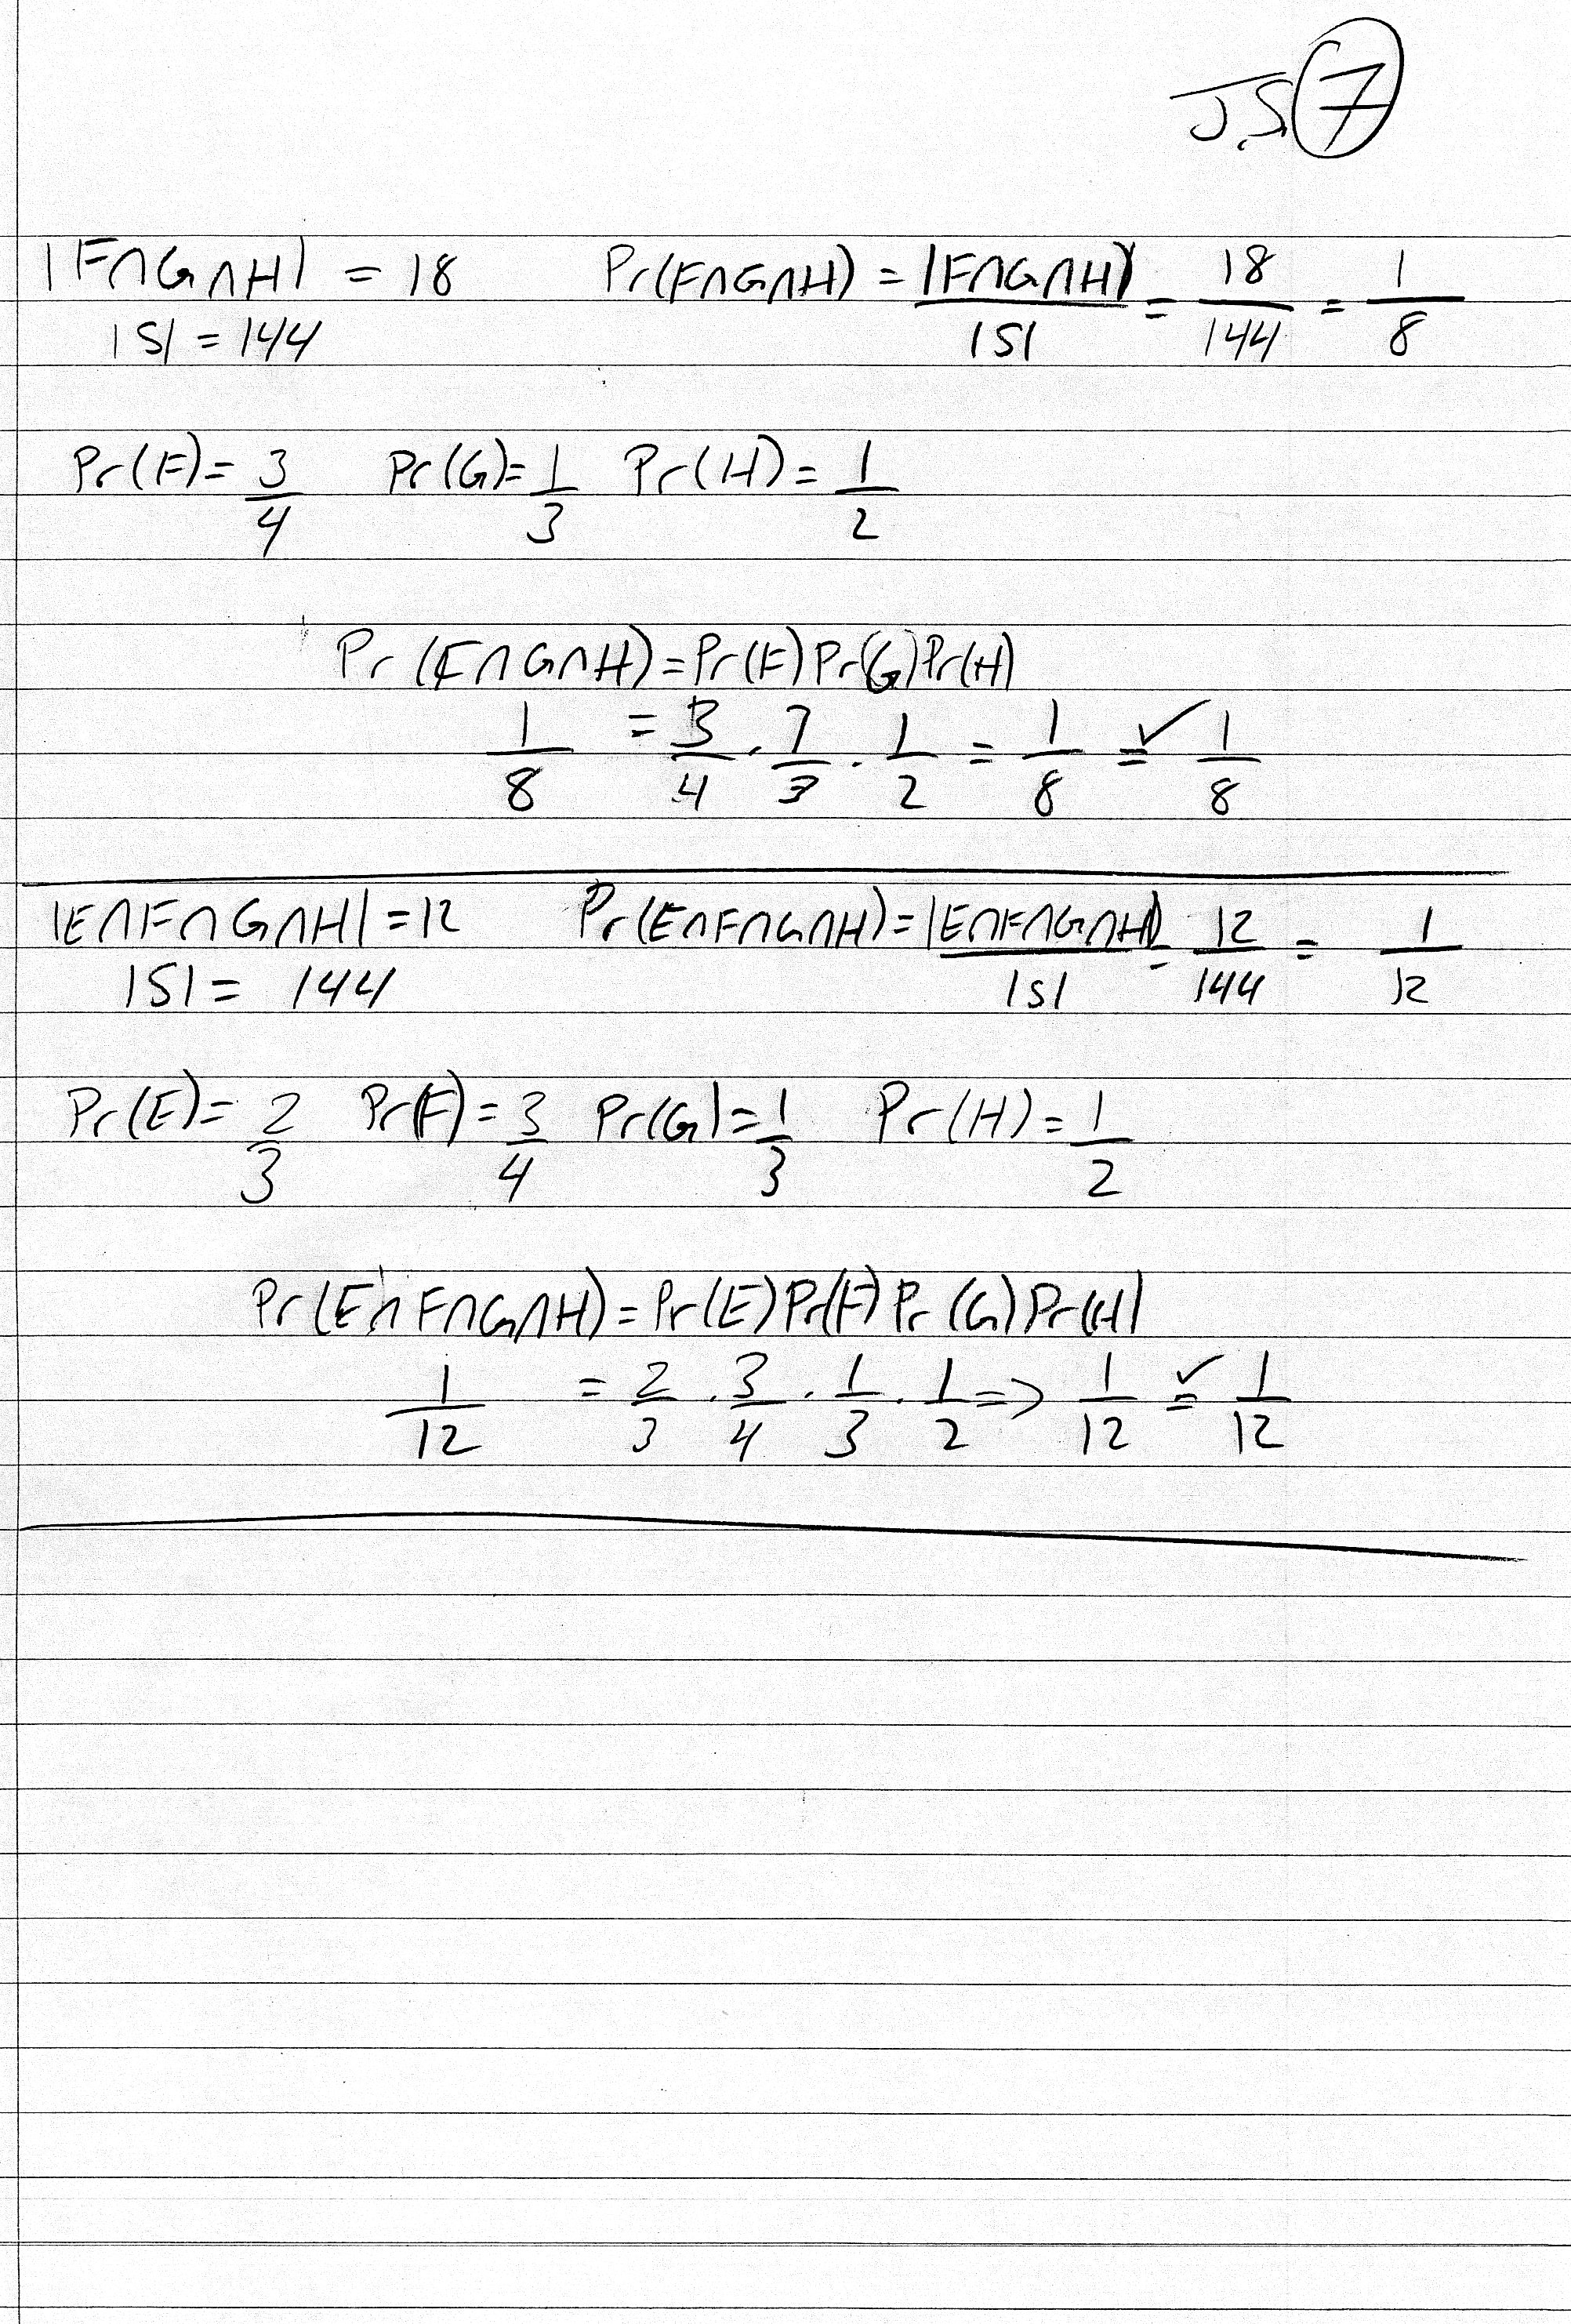 J.S. 7
|F∩G∩H| = 18 Pr(F∩G∩H) = |F∩G∩H| / |S| = 18/144 = 1/8
|S| = 144
Pr(F) = 3/4 Pr(G) = 1/3 Pr(H) = 1/2
Pr(F∩G∩H) = Pr(F)Pr(G)Pr(H)
1/8 = 3/4 · 1/3 · 1/2 = 1/8 =✓ 1/8
|E∩F∩G∩H| = 12 Pr(E∩F∩G∩H) = |E∩F∩G∩H| / |S| = 12/144 = 1/12
|S| = 144
Pr(E) = 2/3 Pr(F) = 3/4 Pr(G) = 1/3 Pr(H) = 1/2
Pr(E∩F∩G∩H) = Pr(E)Pr(F)Pr(G)Pr(H)
1/12 = 2/3 · 3/4 · 1/3 · 1/2 => 1/12 =✓ 1/12